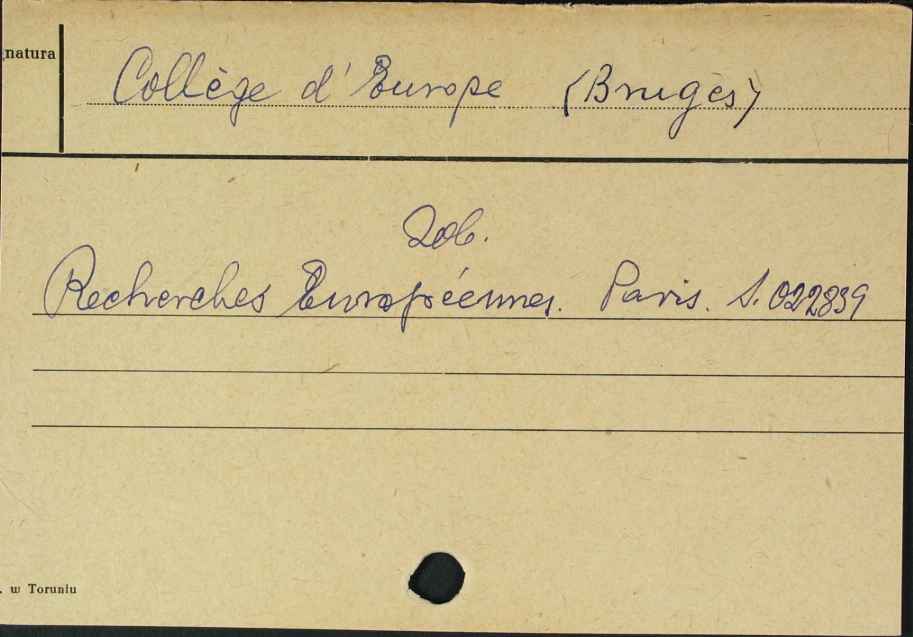 natura
Collège d'Europe (Bruges)
Zob.
Recherches Européennes. Paris. S. 022839
. w Toruniu